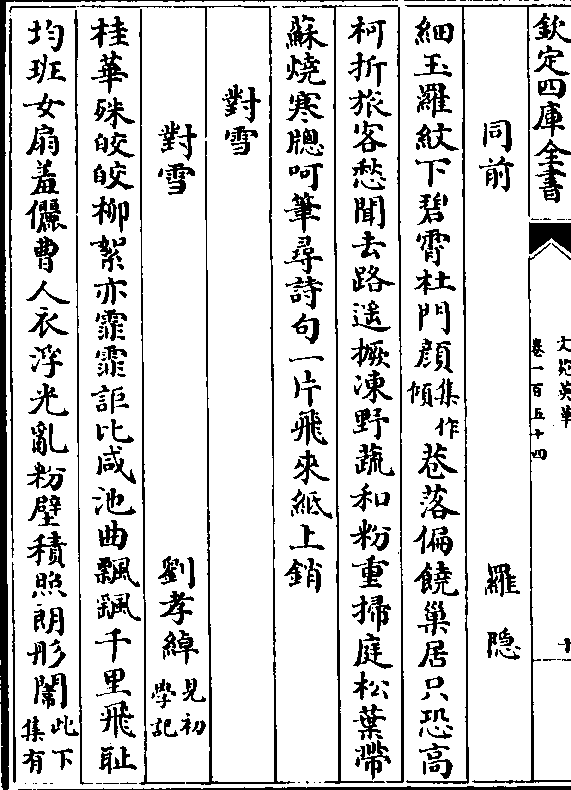 欽定四庫全書
文苑英華
卷一百五十四
十
同前 羅隐
細玉羅紋下碧霄杜門顔集作傾巷落偏饒巢居只恐高
柯折旅客愁聞去路遥撅凍野蔬和粉重掃庭松葉帶
蘇燒寒牕呵筆尋詩句一片飛來紙上銷
對雪
對雪 劉孝綽見初學記
桂華殊皎皎柳絮亦霏霏詎比咸池曲飄飖千里飛耻
均班女扇羞儷曹人衣浮光亂粉壁積照朗彤闈此下集有